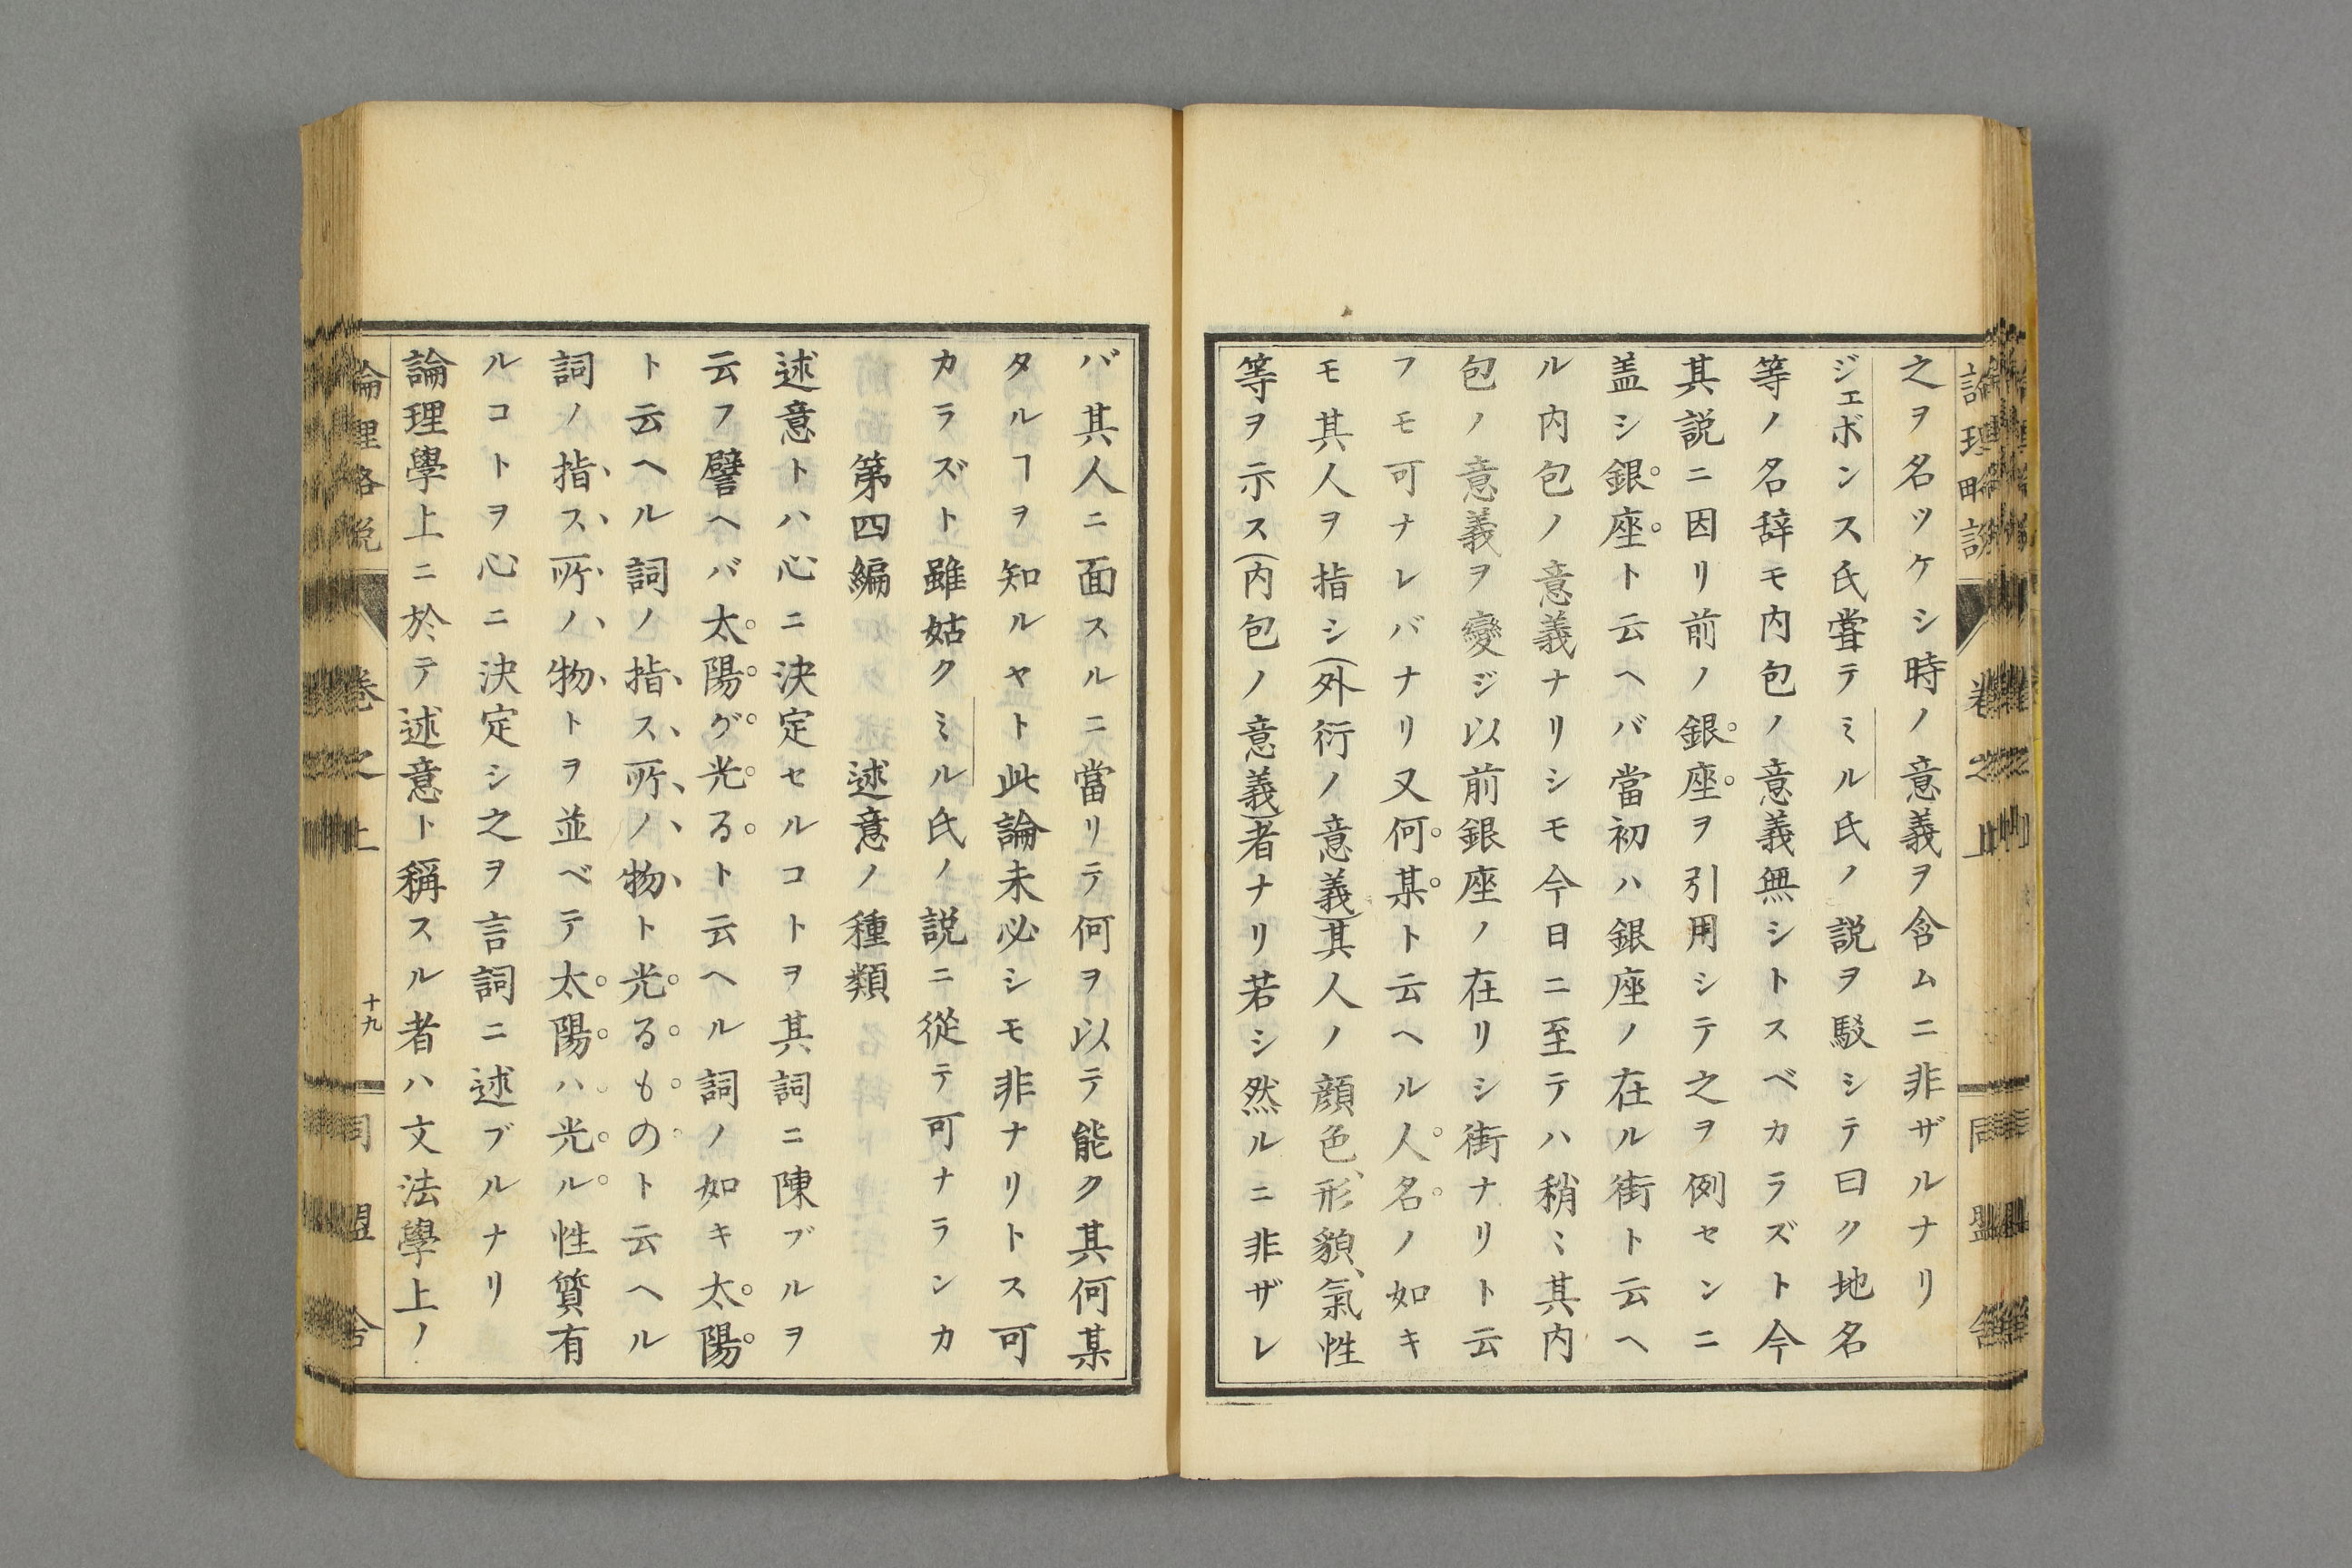 之ヲ名ツケシ時ノ意義ヲ含ムニ非ザルナリ
ジェボンス氏嘗テミル氏ノ説ヲ駁シテ曰ク地名
等ノ名辞モ内包ノ意義無シトスベカラズト今
其説ニ因リ前ノ銀座ヲ引用シテ之ヲ例センニ
盖シ銀座ト云ヘバ當初ハ銀座ノ在ル街ト云ヘ
ル内包ノ意義ナリシモ今日ニ至テハ稍ミ其内
包ノ意義ヲ變ジ以前銀座ノ在リシ街ナリト云
フモ可ナレバナリ又何某ト云ヘル人名ノ如キ
モ其人ヲ指シ(外衍ノ意義)其人ノ顔色、形貌、氣性
等ヲ示ス(内包ノ意義)者ナリ若シ然ルニ非ザレ
バ其人ニ面スルニ當リテ何ヲ以テ能ク其何某
タルヿヲ知ルヤト此論未必シモ非ナリトス可
カラズト雖姑クミル氏ノ説ニ從テ可ナランカ
第四編 述意ノ種類
述意トハ心ニ決定セルコトヲ其詞ニ陳ブルヲ
云フ譬ヘバ太陽ガ光るト云ヘル詞ノ如キ太陽
ト云ヘル詞ノ指ス所ノ物ト光るものト云ヘル
詞ノ指ス所ノ物トヲ並ベテ太陽ハ光ル性質有
ルコトヲ心ニ決定シ之ヲ言詞ニ述ブルナリ
論理學上ニ於テ述意ト稱スル者ハ文法學上ノ
論理略説 卷之上 十九 同盟舎